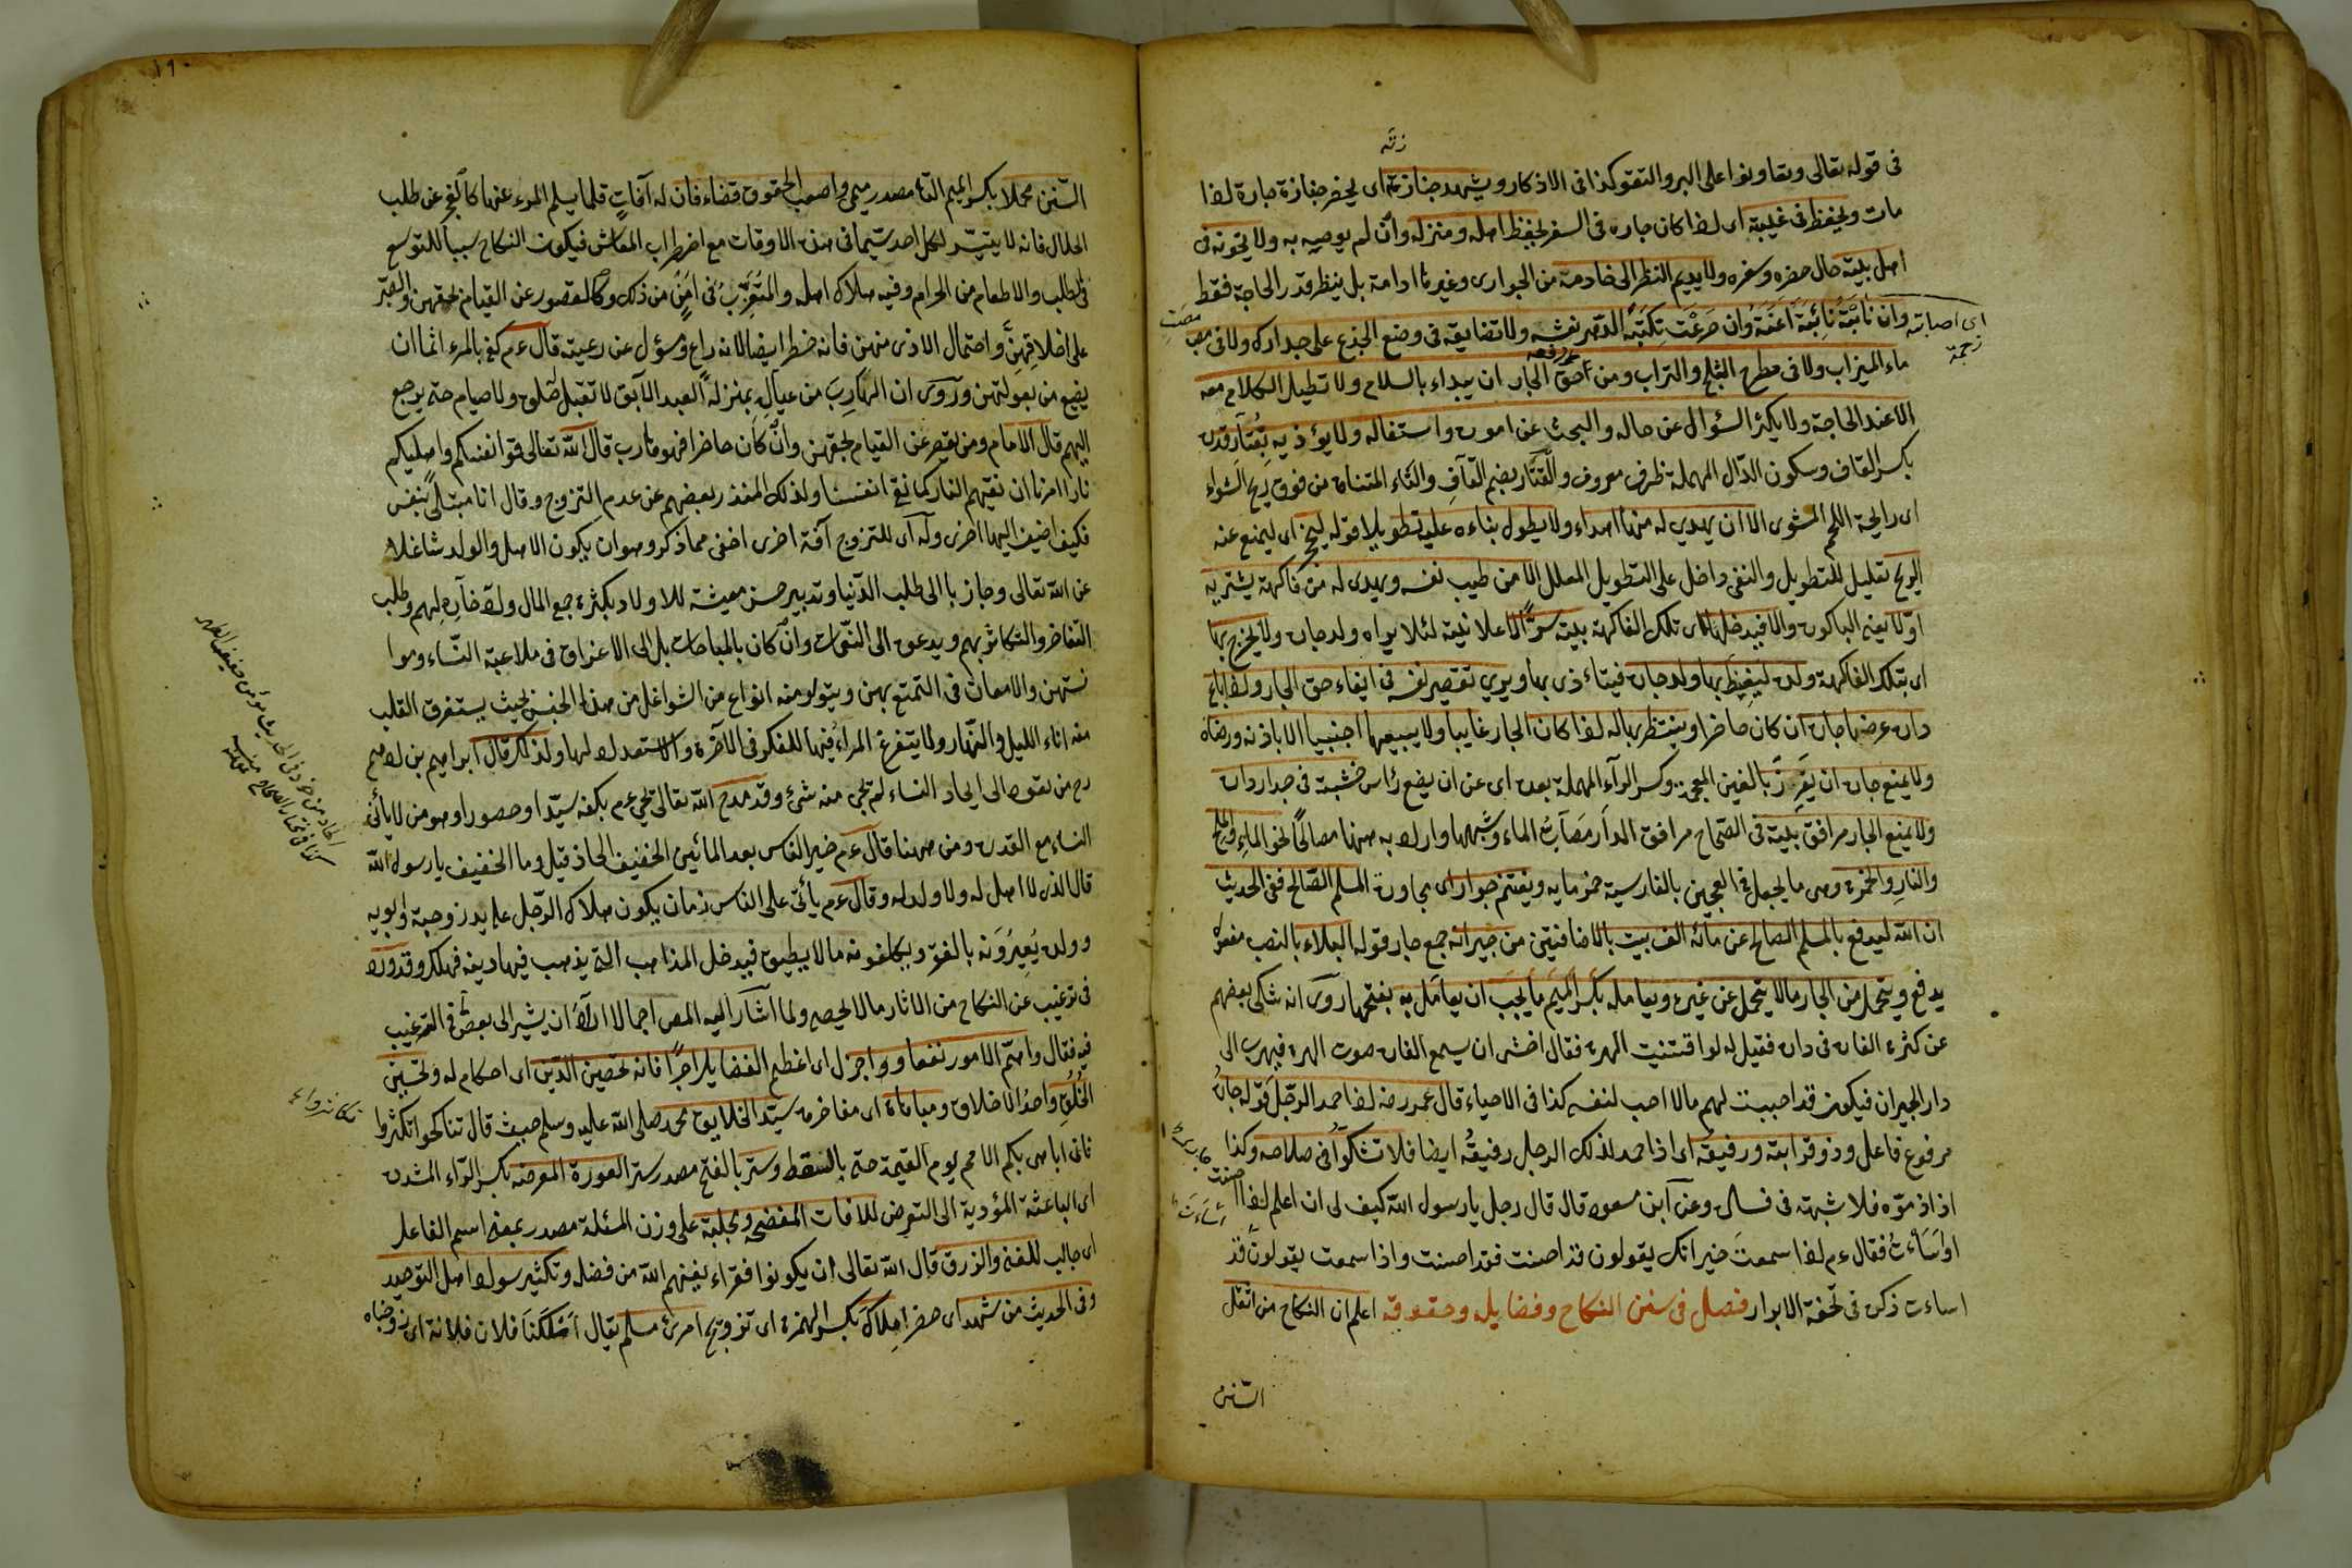 فى قوله تعالى وتعاونوا على البر والتقوى كذا فى الاذكار ويشهد جنازته اى يحضر جنازة جاره اذا
مات ويحفظ فى غيبته اى اذا كان جاره فى السفر يحفظ اهله ومنزله وان لم يوصيه به ولا يخونه فى
اهل بيته حال حضره وسفره ولا يديم النظر الى خادمته من الجوارى وغيرها ادامة بل ينظر قدر الحاجة فقط
وان نابته نائبة اعنه وان صرعت نكبة الدهر نعشه ولا تضايقه فى وضع الجذع على جدارك ولا فى مصب
ماء الميزاب ولا فى مطرح الثلج والتراب ومن حق الجار ان يبداء بالسلام ولا تطيل الكلام معه
الا عند الحاجة ولا يكثر السؤال عن حاله والبحث عن اموره واستفاله ولا يؤذيه بقتار قدره
بكسر القاف وسكون الدال المهملة ظرف معروف والقتار بضم القاف والتاء المثناة من فوق ريح الشواء
اى رايحة اللحم المشوى الا ان يهدى له منها اهداء ولا يطول بناءه عليه تطويلا قوله ليمنع اى ليمنع عنه
الريح تعليل للتطويل والنفى داخل على التطويل المعلل الا من طيب نفسه ويهدى له من فاكهة يشتريه
اولا يعنى الباكورة والا فيدخلها اى تلك الفاكهة بيته سرا لا علانية لئلا يراه ولد جاره ولا يخرج بها
اى بتلك الفاكهة ولده ليغيظ بها ولد جاره فيتاءذى بها ويرى تقصير نفسه فى ايفاء حق الجار واذا باع
داره عرضها جاره ان كان حاضرا وينتظر بها له اذا كان الجار غايبا ولا يبيعها اجنبيا الا باذنه ورضاه
ولا يمنع جاره ان يغرز بالغين المعجمة وكسر الراء المهملة بعده اى عن ان يضع رأس خشبة فى جدار داره
ولا يمنع الجار مرافق بيته فى الصحاح مرافق الدار مصاب الماء وشبهها واراد به ههنا مصالحا نحو الماء والملح
والنار والخمرة وهى ما يجعل فى العجين بالفارسية خمر مايه ويغتنم جوار اى مجاورة المسلم الصالح ففى الحديث
ان الله ليدفع بالمسلم الصالح عن مائة الف بيت بالاضافتين من جيرانه جمع جار قوله البلاء بالنصب مفعول
يدفع ويتحمل من الجار ما لا يتحمل عن غيره ويعامله بكسر الميم ما يجب ان يعامل به بفتحها روى انه شكى بعضهم
عن كثرة الفار فى داره فقيل له لو اقتنيت الهرة فقال اخشى ان يسمع الفار صوت الهرة فيهرب الى
دار الجيران فيكون قد احببت لهم ما لا احب لنفسى كذا فى الاحياء قال عمر رضه اذا حمد الرجل قوله جاره
مرفوع فاعل وذو قرابته ورفيقه اى اذا حمد لذلك الرجل رفيقه ايضا فلا تشكوا فى صلاحه وكذا
اذا ذموه فلا شبهة فى فساده وعن ابن مسعود قال قال رجل يا رسول الله كيف لى ان اعلم اذا احسنت
او اسأت فقال عم اذا سمعت جيرانك يقولون قد احسنت فقد احسنت واذا سمعت يقولون قد
اساءت ذكره فى تحفة الابرار فصل فى سنن النكاح وفضايله وحقوقه اعلم ان النكاح من اثقل
السنن
السنن محملا بكسر الميم الثا مصدر ميمى واصعب الحقوق قضاء فان له آفات قلما يسلم المرء عنها كالعجز عن طلب
الحلال فانه لا يتيسر لكل احد سيما فى هذه الاوقات مع اضطراب المعاش فيكون النكاح سببا للتوسع
فى الطلب والاطعام من الحرام وفيه هلاك اهله والمتعزب فى امن من ذلك وكالقصور عن القيام بحقهن والصبر
على اخلاقهن واحتمال الاذى منهن فانه خطر ايضا لانه راع ومسؤل عن رعيته قال عم كفى بالمرء اثما ان
يضيع من يعولهن وروى ان الهارب من عياله بمنزلة العبد الآبق لا تقبل صلوة ولا صيام حتى يرجع
اليهم قال الامام ومن يقصر عن القيام بحقهن وان كان حاضرا فهو هارب قال الله تعالى قوا انفسكم واهليكم
نارا امرنا ان نقيهم النار كما نقى انفسنا ولذلك اعتذر بعضهم عن عدم التزوج وقال انا مبتلى بنفس
فكيف اضيف اليها اخرى وله اى للتزوج آفة اخرى اخفى مما ذكر وهو ان يكون الاهل والولد شاغلا
عن الله تعالى وجاذبا الى طلب الدنيا وتدبير حسن معيشة للاولاد بكثرة جمع المال وادخاره لهم وطلب
التفاخر والتكاثر بهم ويدعوه الى التنعمات وان كان بالمباحات بل الى الاغراق فى ملاعبة النساء وموا
نستهن والامعان فى التمتع بهن ويتولد منه انواع من الشواغل من هذا الجنس بحيث يستغرق القلب
منه اناء الليل والنهار ولا يتفرغ المراء فيها للتفكر فى الآخرة والاستعداد لها ولذلك قال ابراهيم بن ادهم
رح من تعود الى ايجاد النساء لم يجئ منه شئ وقد مدح الله تعالى يحيى عم بكونه سيدا وحصورا وهو من لا يأتى
النساء مع القدرة ومن ههنا قال عم خير الناس بعد المائتين الخفيف الحاذ قيل وما الخفيف يا رسول الله
قال الذى لا اهل له ولا ولد له وقال عم يأتى على الناس زمان يكون هلاك الرجل على يد زوجته وابويه
وولده يعيرونه بالفقر ويكلفونه ما لا يطيق فيدخل المذاهب التى يذهب فيها دينه فهلك وقد ورد
فى ترغيب عن النكاح من الاثار ما لا يحصى ولما اشار اليه المص اجمالا اراد ان يشير الى بعض فى الترغيب
فيه فقال واهم الامور نفعا واجزل اى اعظم الفضايل اجرا فانه تحصين الدين اى احكام له وتحسين
الخلق واحد الاخلاق ومباهاة اى مفاخرة سيد الخلايق محمد صلى الله عليه وسلم حيث قال تناكحوا تكثروا
فانى اباهى بكم الامم يوم القيمة حتى بالسقط وستر بالفتح مصدر ستر العورة المعرضة بكسر الراء المشددة
اى الباعثة المؤدية الى التعرض للافات المفضحة ومجلبة على وزن المسئلة مصدر بمعنى اسم الفاعل
اى جالب للغنى والرزق قال الله تعالى ان يكونوا فقراء يغنهم الله من فضله وتكثير سواد اهل التوحيد
وفى الحديث من شهد اى حضر املاك بكسر الهمزة اى تزويج امرئ مسلم يقال املكنا فلان فلانة اى زوجناه